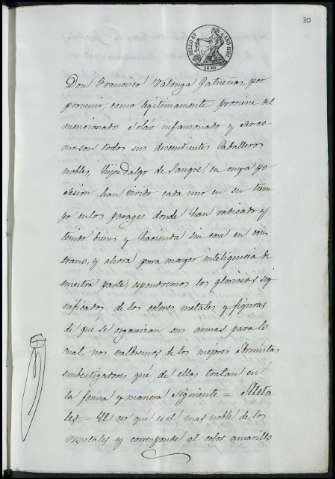 30
Don Francisco Valonga Gatuellas, por
provenir como legitimamente proviene del
mencionado y ser co
mo son todos sus decendientes Caballeros
nobles, hijosdalgo de Sangre en cuya po
sesion han vivido cada uno en su tiem
po en los parages donde han radicado y
tenido bienes y hacienda sin cosa en con
trario, y ahora para mayor inteligencia de
nuestra parte espondremos los gloriosos sig
nificados de los colores, metales y figuras
de que se organizan sus armas para lo
cual nos valdremos de los mejores Armistas
imbestigadores que de ellas tratan en
la forma y manera siguiente = Meta
les = El oro que es el mas noble de los
metales y corresponde al color amarillo